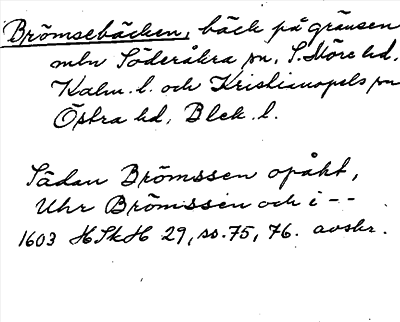 Brömsebäcken, bäck på gränsen
mln Söderåkra sn, S. Möre hd,
Kalm. l. och Kristianopels sn
Östra hd, Blek. l.
Sådan Brömssen opåkt,
Uhr Brömssen och i --
1603 HSkH 29, ss. 75, 76. avskr.